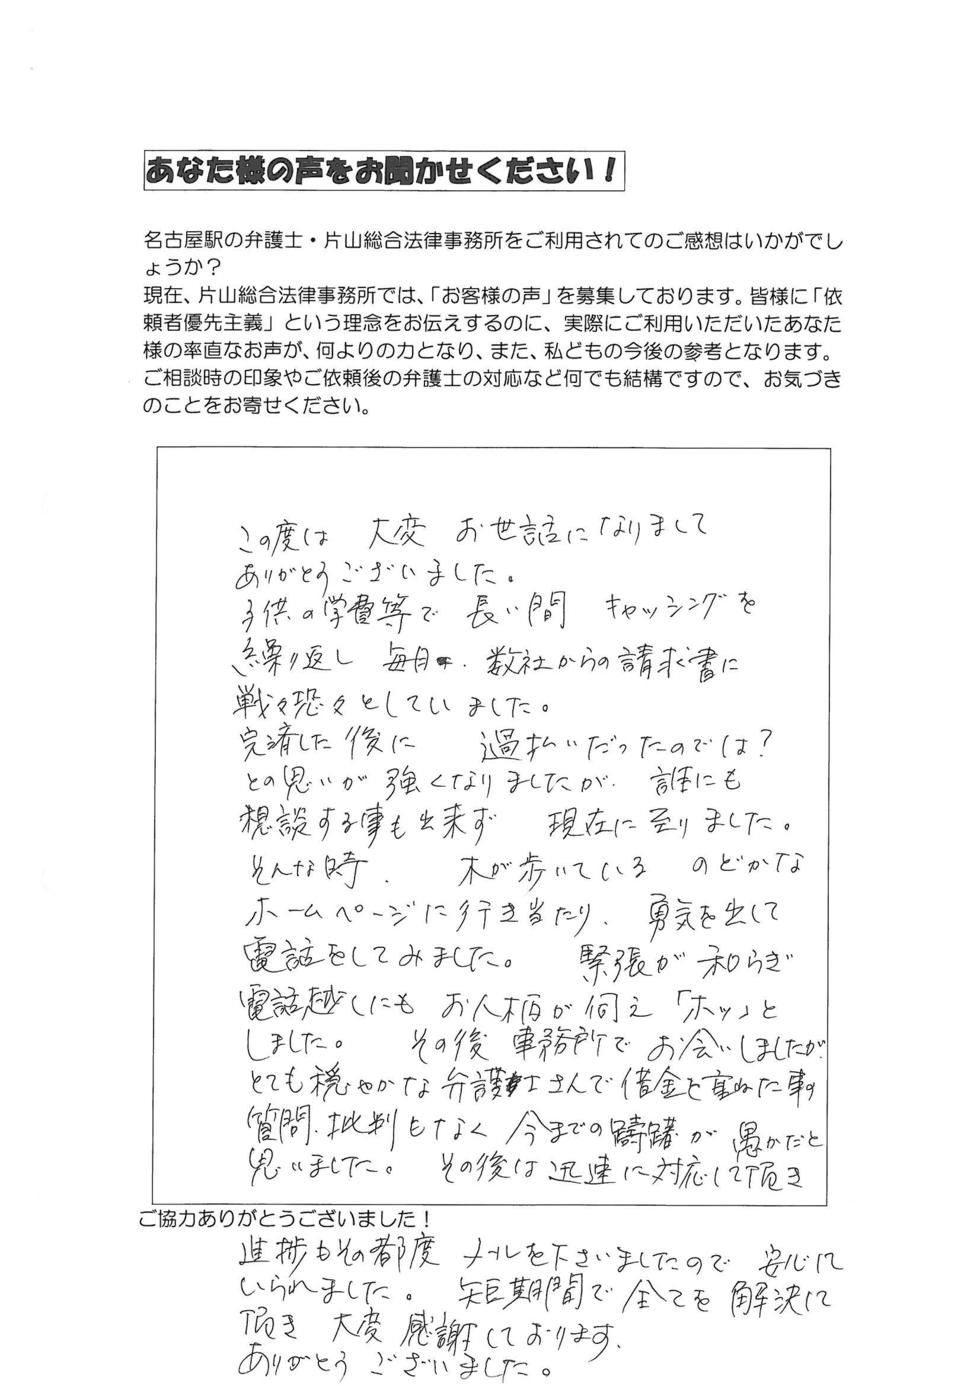 あなた様の声をお聞かせください！
名古屋駅の弁護士・片山総合法律事務所をご利用されてのご感想はいかがでし
ょうか？
現在、片山総合法律事務所では、「お客様の声」を募集しております。皆様に「依
頼者優先主義」という理念をお伝えするのに、実際にご利用いただいたあなた
様の率直なお声が、何よりの力となり、また、私どもの今後の参考となります。
ご相談時の印象やご依頼後の弁護士の対応など何でも結構ですので、お気づき
のことをお寄せください。
この度は 大変 お世話になりまして
ありがとうございました。
子供の学費等で 長い間 キャッシングを
繰り返し 毎月、数社からの請求書に
戦々恐々としていました。
完済した後に 過払いだったのでは？
との思いが強くなりましたが、誰にも
想談する事も出来ず 現在に至りました。
そんな時、 木が歩いている のどかな
ホームページに行き当たり、勇気を出して
電話をしてみました。 緊張が和らぎ
電話越しにも お人柄が伺え「ホッ」と
しました。 その後 事務所で お会いしましたが
とても穏やかな弁護士さんで借金を重ねた事の
質問、批判もなく 今までの躊躇が 愚かだと
思いました。 その後は迅速に対応して頂き
ご協力ありがとうございました！
進捗もその都度 メールを下さいましたので 安心して
いられました。 短期間で全てを解決して
頂き 大変感謝しております。
ありがとう ございました。